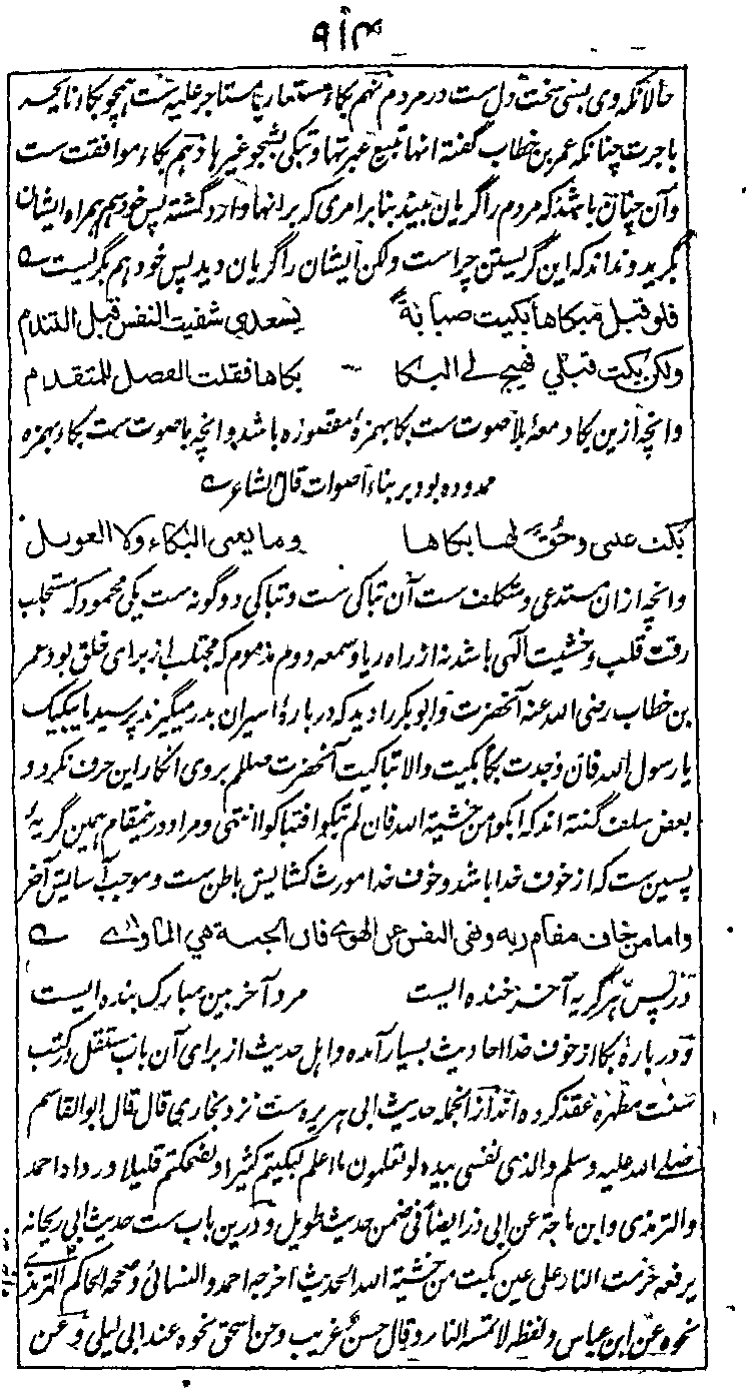 ۹۱۴
حالانکه وی بسی سخت دل ست در مردم نهم بکاء مستعار یا مستاجر علیه ست همچو بکاء نایحه
باجرت چنانکه عمر بن خطاب گفته انها تبیع عبرتها و تبکی بشجو غیرها دهم بکاء موافقت ست
وآن چنان باشد که مردم را گریان بیند بنابر امری که بر انها وارد گشته پس خود هم همراه ایشان
بگرید و نداند که این گریستن چرا است ولکن ایشان را گریان دید پس خود هم بگریست ؎
فلو قبل مبکاها بکیت صبابة بسعدی شفیت النفس قبل التندم
ولکن بکت قبلی فهیج لی البکا بکاها فقلت الفضل للمتقدم
وانچه ازین بکا دمعهٔ بلا صوت ست بکا بهمزهٔ مقصوره باشد وانچه با صوت ست بکاء بهمزه
ممدوده بود بر بناء اصوات قال الشاعر ؎
بکت عینی وحُق لها بکاها وما یغنی البکاء ولا العویل
وانچه ازان مستدعی و متکلف ست آن تباکی ست و تباکی دو گونه ست یکی محمود که مستجلب
رقت قلب و خشیت الهی باشد نه از راه ریا و سمعه دوم مذموم که مجتلب از برای خلق بود عمر
بن خطاب رضی الله عنه آنحضرت و ابو بکر را دید که دربارهٔ اسیران بدر میگریند پرسید ما یبکیک
یا رسول الله فان وجدت بکا بکیت والا تباکیت آنحضرت صللم بروی انکار این حرف نکرد و
بعض سلف گفته اند که ابکوا من خشیة الله فان لم تبکوا فتباکوا انتهی و مراد درینمقام همین گریهٔ
پسین ست که از خوف خدا باشد و خوف خدا مورث کشایش باطن ست و موجب آسایش آخر
واما من خاف مقام ربه ونهی النفس عن الهوی فان الجنة هی الماوی ؎
در پس هر گریه آخر خنده ایست مرد آخر بین مبارک بنده ایست
و دربارهٔ بکا از خوف خدا احادیث بسیار آمده و اهل حدیث از برای آن باب مستقل در کتب
سنت مطهره عقد کرده اند از انجمله حدیث ابی هریره ست نزد بخاری قال قال ابو القاسم
صلی الله علیه وسلم والذی نفسی بیده لو تعلمون ما اعلم لبکیتم کثیرا ولضحکتم قلیلا ورواه احمد
والترمذی وابن ماجة عن ابی ذر ایضا فی ضمن حدیث طویل و درین باب ست حدیث ابی ریحانه
یرفعه حرمت النار علی عین بکت من خشیة الله الحدیث اخرجه احمد والنسائی وصححه الحاکم وللترمذی
نحوه عن ابن عباس ولفظه لا تمسه النار وقال حسن غریب وعن انس نحوه عند ابی یعلی وعن